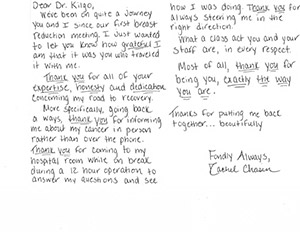 Dear Dr. Kilgo,
We've been on quite a journey
you and I since our first breast
reduction meeting. I just wanted
to let you know how grateful I
am that it was you who traveled
it with me.
Thank you for all of your
expertise, honesty and dedication
concerning my road to recovery.
More specifically, going back
a ways, thank you for informing
me about my cancer in person
rather than over the phone.
Thank you for coming to my
hospital room while on break
during a 12 hour operation, to
answer my questions and see
how I was doing. Thank you for
always steering me in the
right direction!
What a class act you and your
staff are, in every respect.
Most of all, thank you for
being you, exactly the way
you are.
Thanks for putting me back
together... beautifully
Fondly Always,